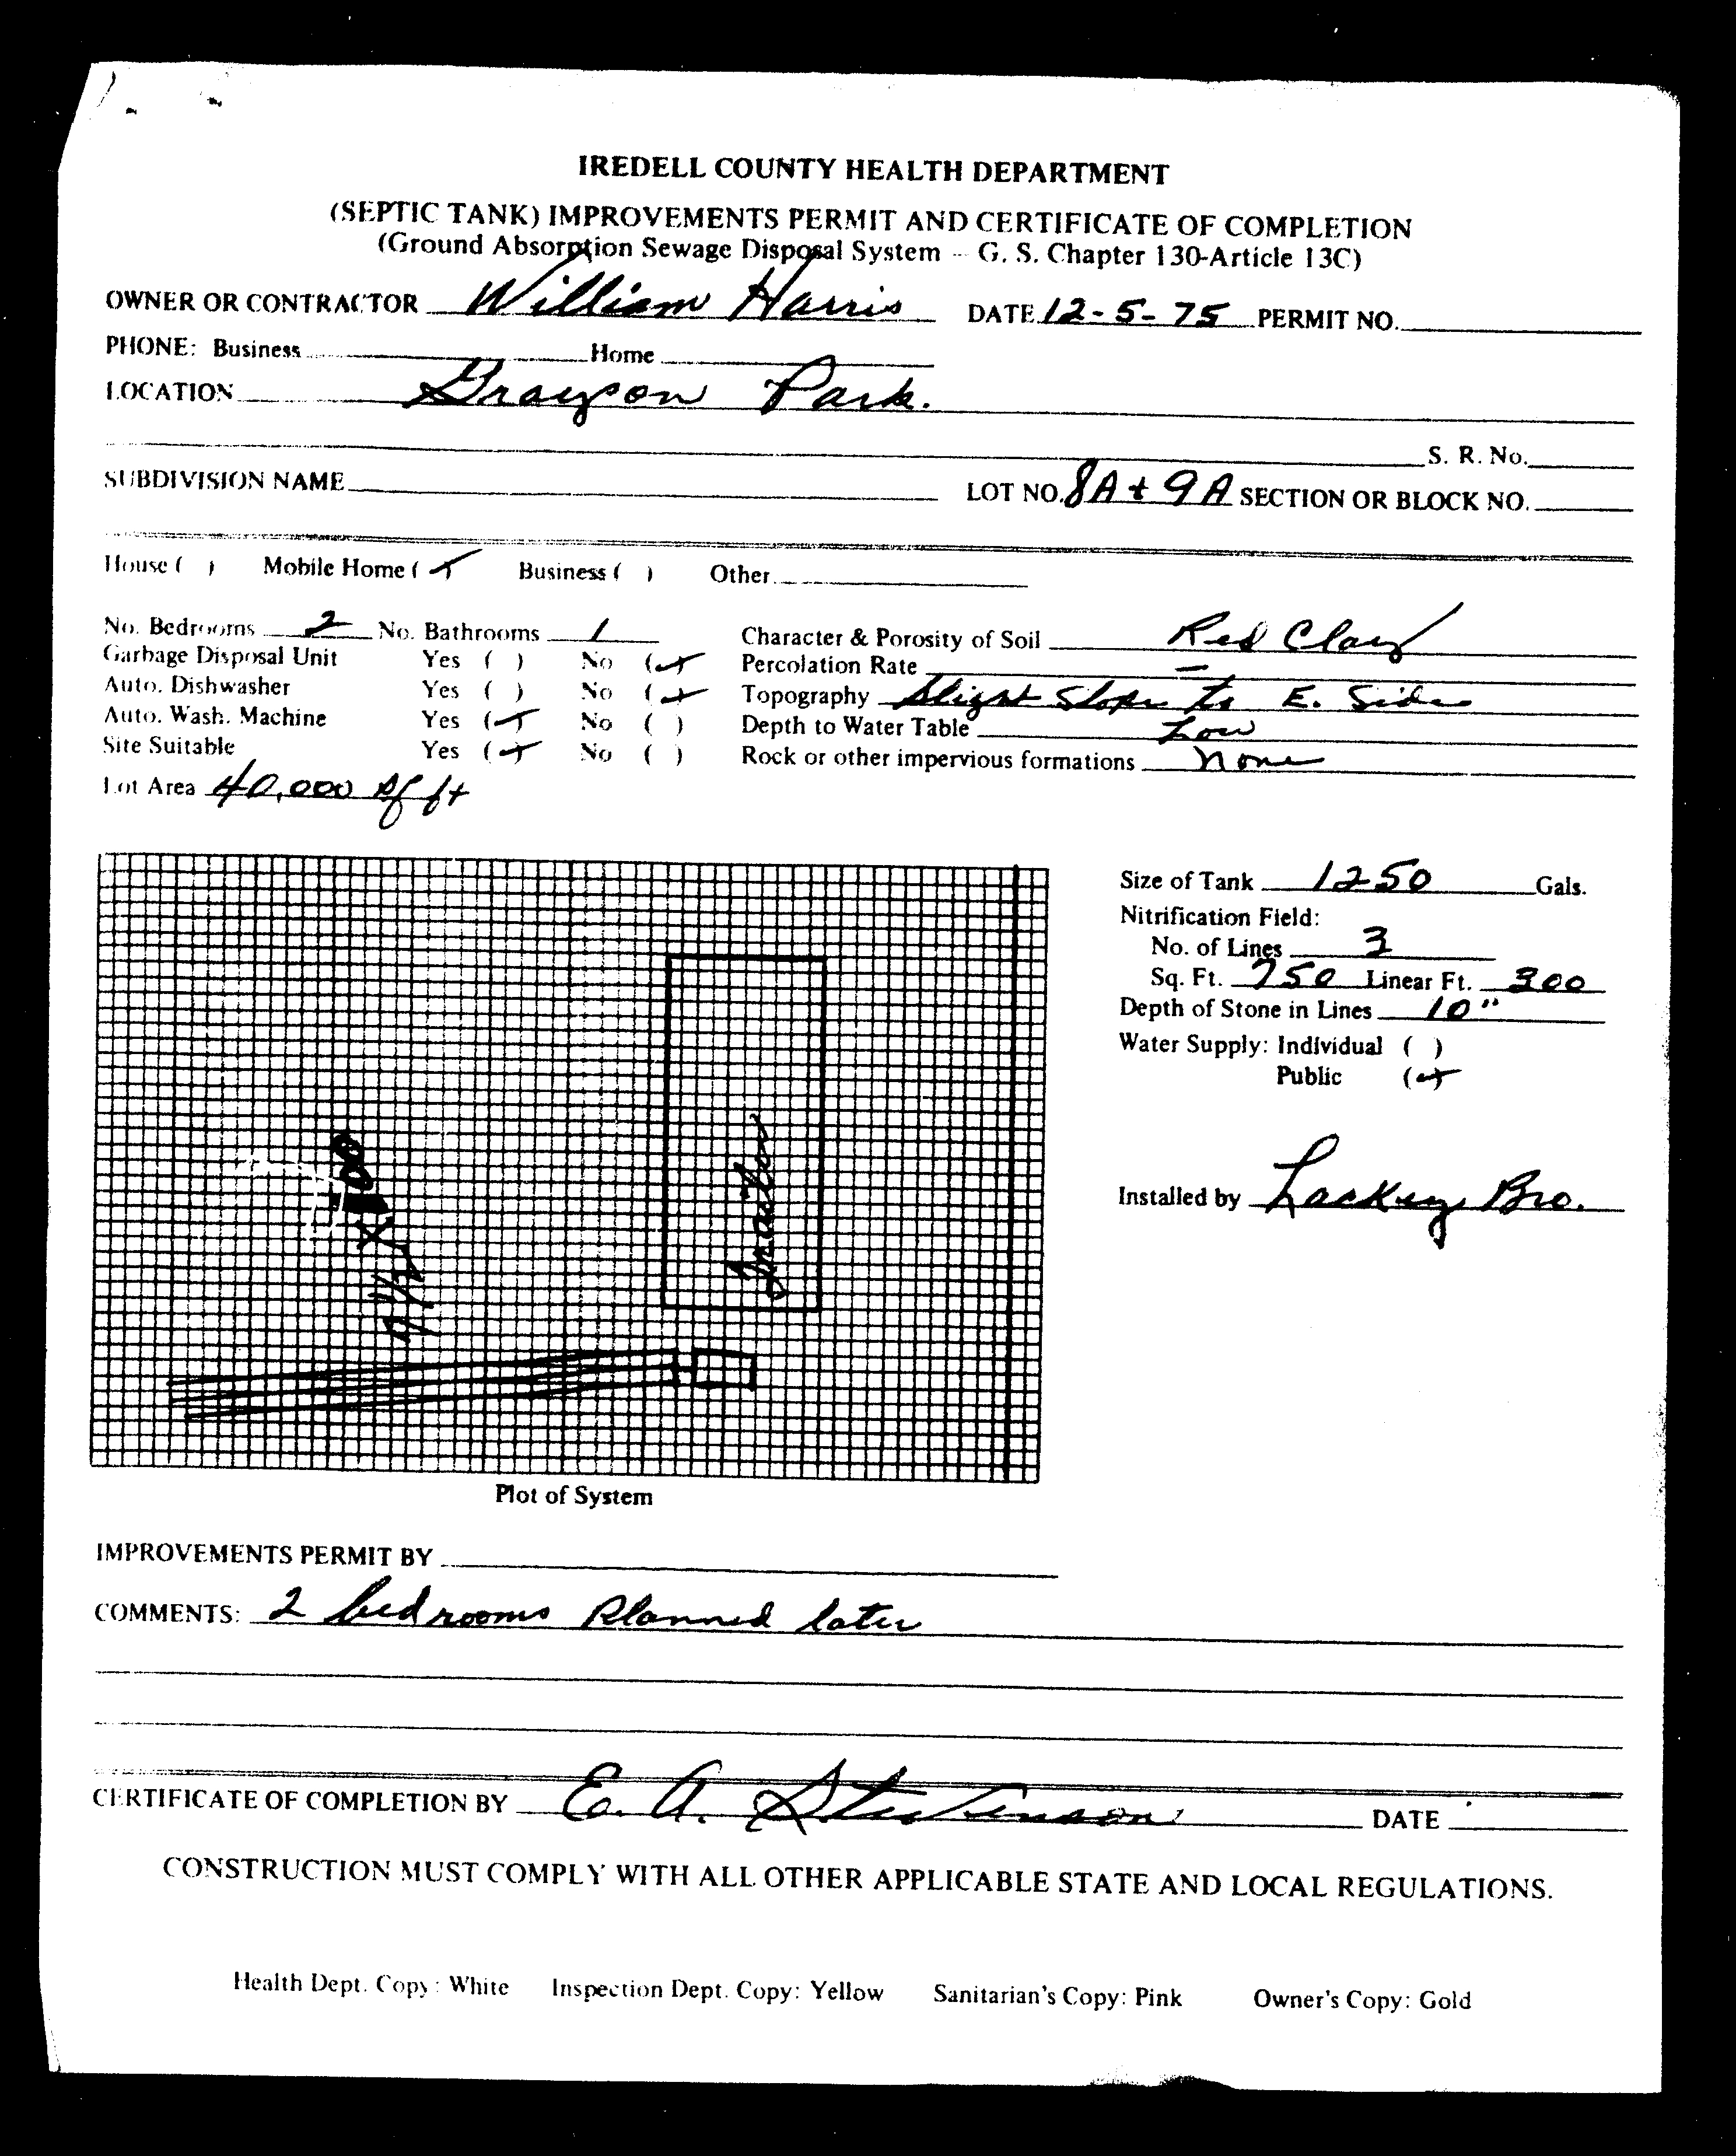 IREDELL COUNTY HEALTH DEPARTMENT
(SEPTIC TANK) IMPROVEMENTS PERMIT AND CERTIFICATE OF COMPLETION
(Ground Absorption Sewage Disposal System -- G. S. Chapter 130-Article 13C)
OWNER OR CONTRACTOR William Harris DATE 12-5-75 PERMIT NO.
PHONE: Business Home
LOCATION Grayson Park.
S. R. No.
SUBDIVISION NAME LOT NO. 8A + 9A SECTION OR BLOCK NO.
House ( ) Mobile Home (✓) Business ( ) Other
No. Bedrooms 2 No. Bathrooms 1 Character & Porosity of Soil Red Clay
Garbage Disposal Unit Yes ( ) No (✓) Percolation Rate –
Auto. Dishwasher Yes ( ) No (✓) Topography Slight Slope to E. Side
Auto. Wash. Machine Yes (✓) No ( ) Depth to Water Table Low
Site Suitable Yes (✓) No ( ) Rock or other impervious formations None
Lot Area 40,000 sq ft
Size of Tank 1250 Gals.
Nitrification Field:
No. of Lines 3
Sq. Ft. 750 Linear Ft. 300
Depth of Stone in Lines 10"
Water Supply: Individual ( )
Public (✓)
Installed by Lackey Bro.
Trailor
Plot of System
IMPROVEMENTS PERMIT BY
COMMENTS: 2 bedrooms Planned later
CERTIFICATE OF COMPLETION BY E. A. Stevenson DATE
CONSTRUCTION MUST COMPLY WITH ALL OTHER APPLICABLE STATE AND LOCAL REGULATIONS.
Health Dept. Copy: White Inspection Dept. Copy: Yellow Sanitarian's Copy: Pink Owner's Copy: Gold